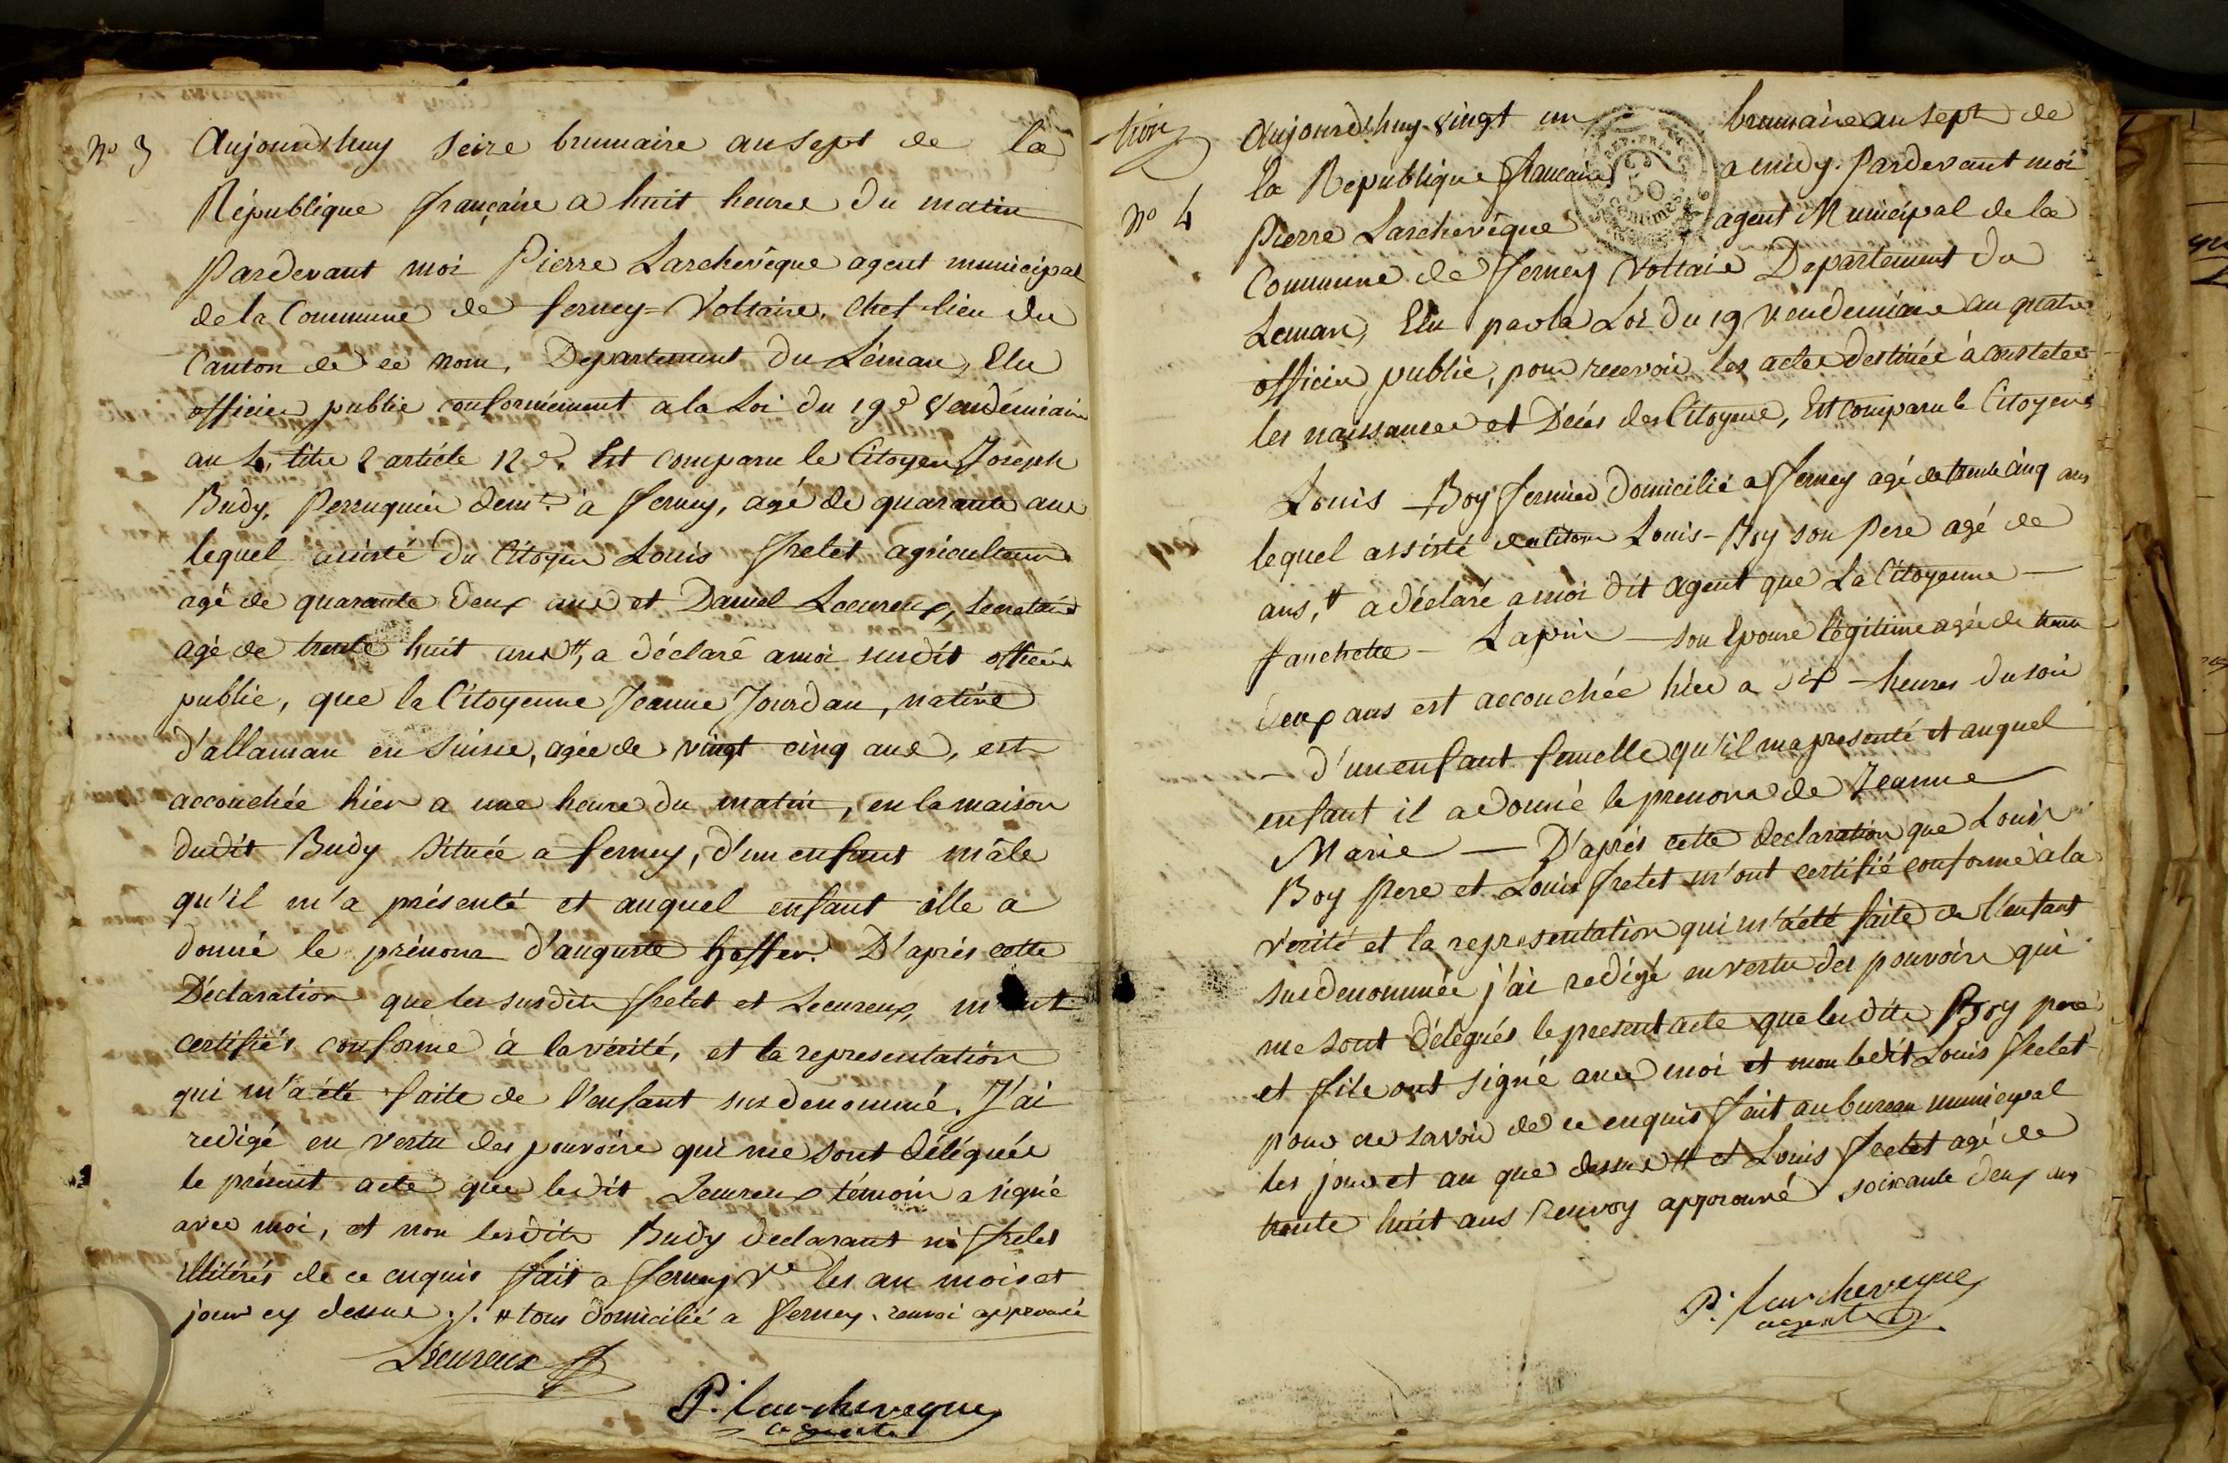 N° 3 Aujourd'huy seize brumaire an sept de la
République française a huit heures du matin
Pardevant moi Pierre Larchevêque agent municipal
de la Commune de ferney=Voltaire, chef-lieu du
Canton de ce nom, Département du Léman, Elu
officier public conformément a la Loi du 19e Vendémiaire
an 4, titre 2 article 12e. Est comparu le Citoyen Joseph
Budy, Perruquier demt. à ferney, agé de quarante ans
lequel assisté du Citoyen Louis fretet agriculteur
agé de quarante deux ans et Daniel Lecureux, secretaire
agé de trente huit ans #, a déclaré a moi susdit officier
public, que la Citoyenne Jeanne Jourdan, native
d'allaman en Suisse, agée de vingt cinq ans, est
accouchée hier a une heure du matin, en la maison
dudit Budy située a ferney, d'un enfant mâle
qu'il m'a présenté et auquel enfant elle a
donné le prénom d'auguste D'après cette
Déclaration que les susdits fretet et Lecureux, m'ont
certifiés conforme à la vérité, et la representation
qui m'a été faite de l'enfant sus denommé. J'ai
redigé en vertu des pouvoirs qui me sont délégués
le présent acte que ledit Lecureux témoin a signé
avec moi, et non lesdits Budy declarant ni fretet
illitérés de ce enquis fait a ferney Ve les an mois et
jour cy dessus ./. # tous domicilié a ferney. renvoi approuvé
Lécureux
P. Larcheveque
agent
tion
Aujourd'huy vingt un brumaire an sept de
la République francaise a midy. Pardevant moi
REP. FRA.
50
centimes
N° 4
Pierre Larchevêque agent Municipal de la
Commune de ferney Voltaire Departement du
Leman, Elu par la Loi du 19 Vendemiaire an quatre
officier public, pour recevoir les actes destinés à constater
les naissances et Décès des Citoyens, Est comparu le Citoyens
Louis Boy fermier Domicilié a ferney agé de trente cinq ans
lequel assisté Louis-Boy son Pere agé de
ans, # a déclaré a moi dit agent que La Citoyenne
fanchette - Lapin - son Epouse légitime agée de trente
deux ans est accouchée hier a six - heures du soir
- d'un enfant femelle qu'il ma presenté et auquel
enfant il a donné le prenom de Jeanne
Marie — D'après cette declaration que Louis
Boy Pere et Louis fretet m'ont certifié conforme à la
verité et la representation qui m'a été faite de l'enfant
susdenommée j'ai redigé en vertu des pouvoirs qui
me sont délégués le present acte que lesdits Boy pere
et fils ont signé avec moi et non ledit Louis fretet
pour ne savoir de ce enquis fait au bureau municipal
les jour et an que dessus # et Louis fretet agé de
trente huit ans renvoy approuvé soixante deux ans
P. Larcheveque
agent